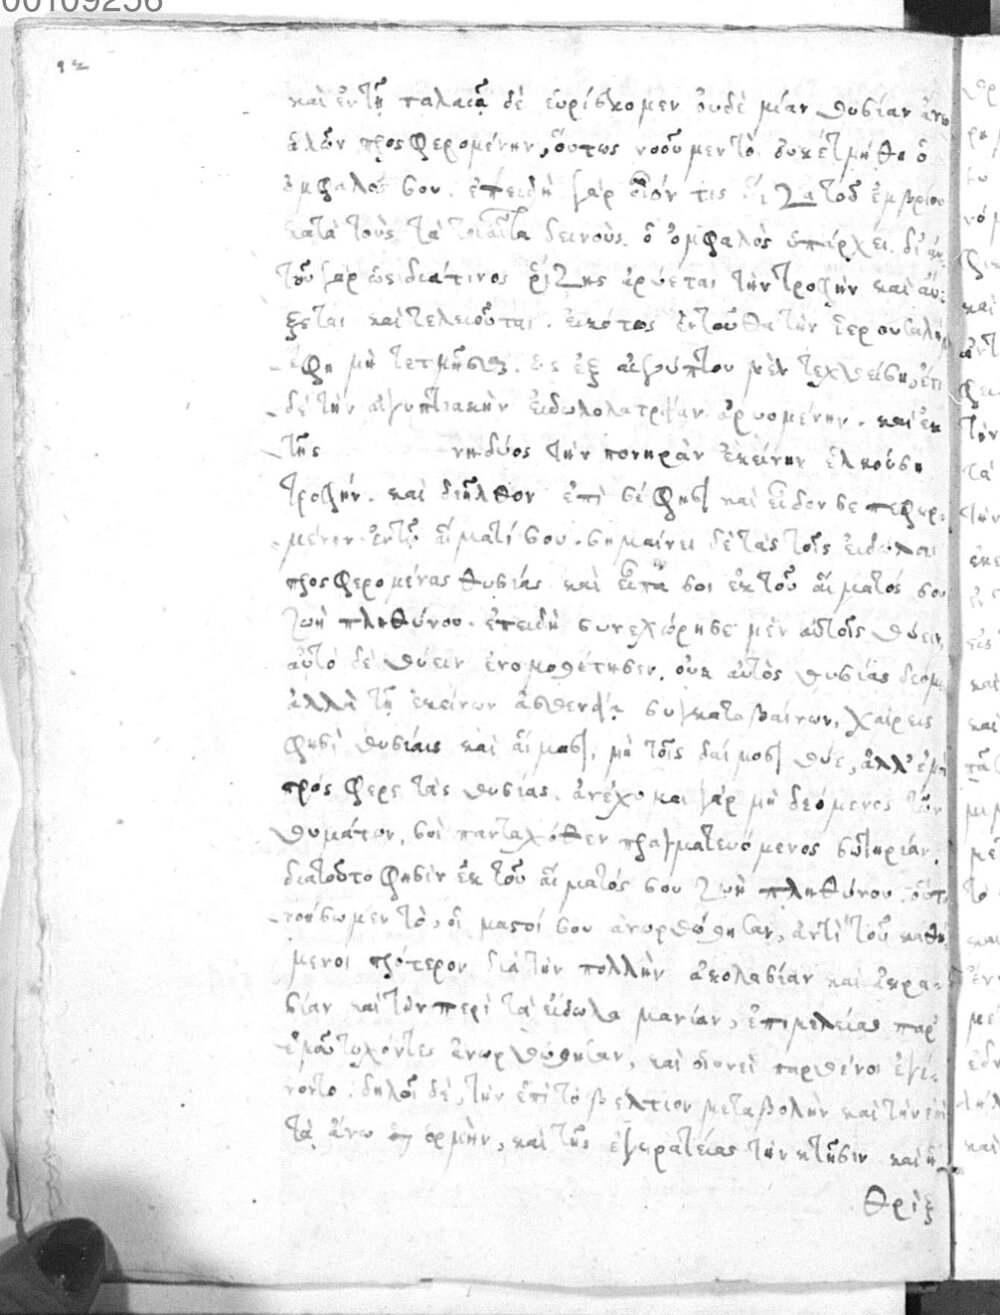 00109256
καὶ ἐν τῇ παλαιᾷ δὲ εὑρίσκομεν οὐδὲ μίαν θυσίαν ἄνευ
ἁλῶν προσφερομένην, οὕτως νοοῦμεν τὸ οὐκ ἐτμήθη ὁ
ὀμφαλός σου. ἐπειδὴ γὰρ οἷόν τις ῥίζα τοῦ ἐμβρύου
κατὰ τοὺς τὰ τοιαῦτα δεινοὺς ὁ ὀμφαλὸς ὑπάρχει. δι' αὐ
τοῦ γὰρ ὡς διά τινος ῥίζης ἀρύεται τὴν τροφὴν καὶ αὔ-
ξεται καὶ τελειοῦται. εἰκότως ἐνταῦθα τὴν ἱερουσαλὴμ
ἔφη μὴ τετμῆσθαι. ὡς ἐξ αἰγύπτου μὲν τεχθεῖσαν, ἔτι
δὲ τὴν αἰγυπτιακὴν εἰδωλολατρείαν ἀρυομένην. καὶ ἐκ
τῆς νηδύος τὴν πονηρὰν ἐκείνην ἕλκουσαν
τροφήν. καὶ διῆλθον ἐπὶ σέ φησὶ καὶ εἶδον σε πεφυρ-
μένην ἐν τῷ αἵματί σου. σημαίνει δὲ τὰς τοῖς εἰδώλοις
προσφερομένας θυσίας καὶ εἶπά σοι ἐκ τοῦ αἵματός σου
ζωὴ πληθύνου. ἐπειδὴ συνεχώρησε μὲν αὐτοῖς θύειν,
αὐτὸ δὲ θύειν ἐνομοθέτησεν. οὐκ αὐτὸς θυσίας δεόμε
ἀλλὰ τῇ ἐκείνων ἀσθενείᾳ συγκαταβαίνων, χαίρεις
φησὶ θυσίαις καὶ αἵμασι, μὴ τοῖς δαίμοσι θύε, ἀλλ' ἐμοὶ
πρόσφερε τὰς θυσίας. ἀνέχομαι γὰρ μὴ δεόμενος τῶν
θυμάτων, σοὶ πανταχόθεν πραγματευόμενος σωτηρίαν.
διὰ τοῦτο φησὶν ἐκ τοῦ αἵματός σου ζωὴ πληθύνου. οὕτω
νοήσωμεν τὸ, οἱ μαστοί σου ἀνωρθώθησαν, ἀντὶ τοῦ καθή
μενοι πρότερον διὰ τὴν πολλὴν ἀκολασίαν καὶ ἀκρα-
σίαν καὶ τὴν περὶ τὰ εἴδωλα μανίαν, ἐπιμελείας παρ'
ἐμοῦ τυχόντες ἀνωρθώθησαν, καὶ οἱονεὶ παρθένοι ἐγέ-
νοντο. δηλοῖ δὲ, τὴν ἐπὶ τὸ βέλτιον μεταβολὴν καὶ τὴν ἐπὶ
τὰ ἄνω ὁρμὴν, καὶ τῆς ἐγκρατείας τὴν κτῆσιν καὶ ἡ
θρὶξ